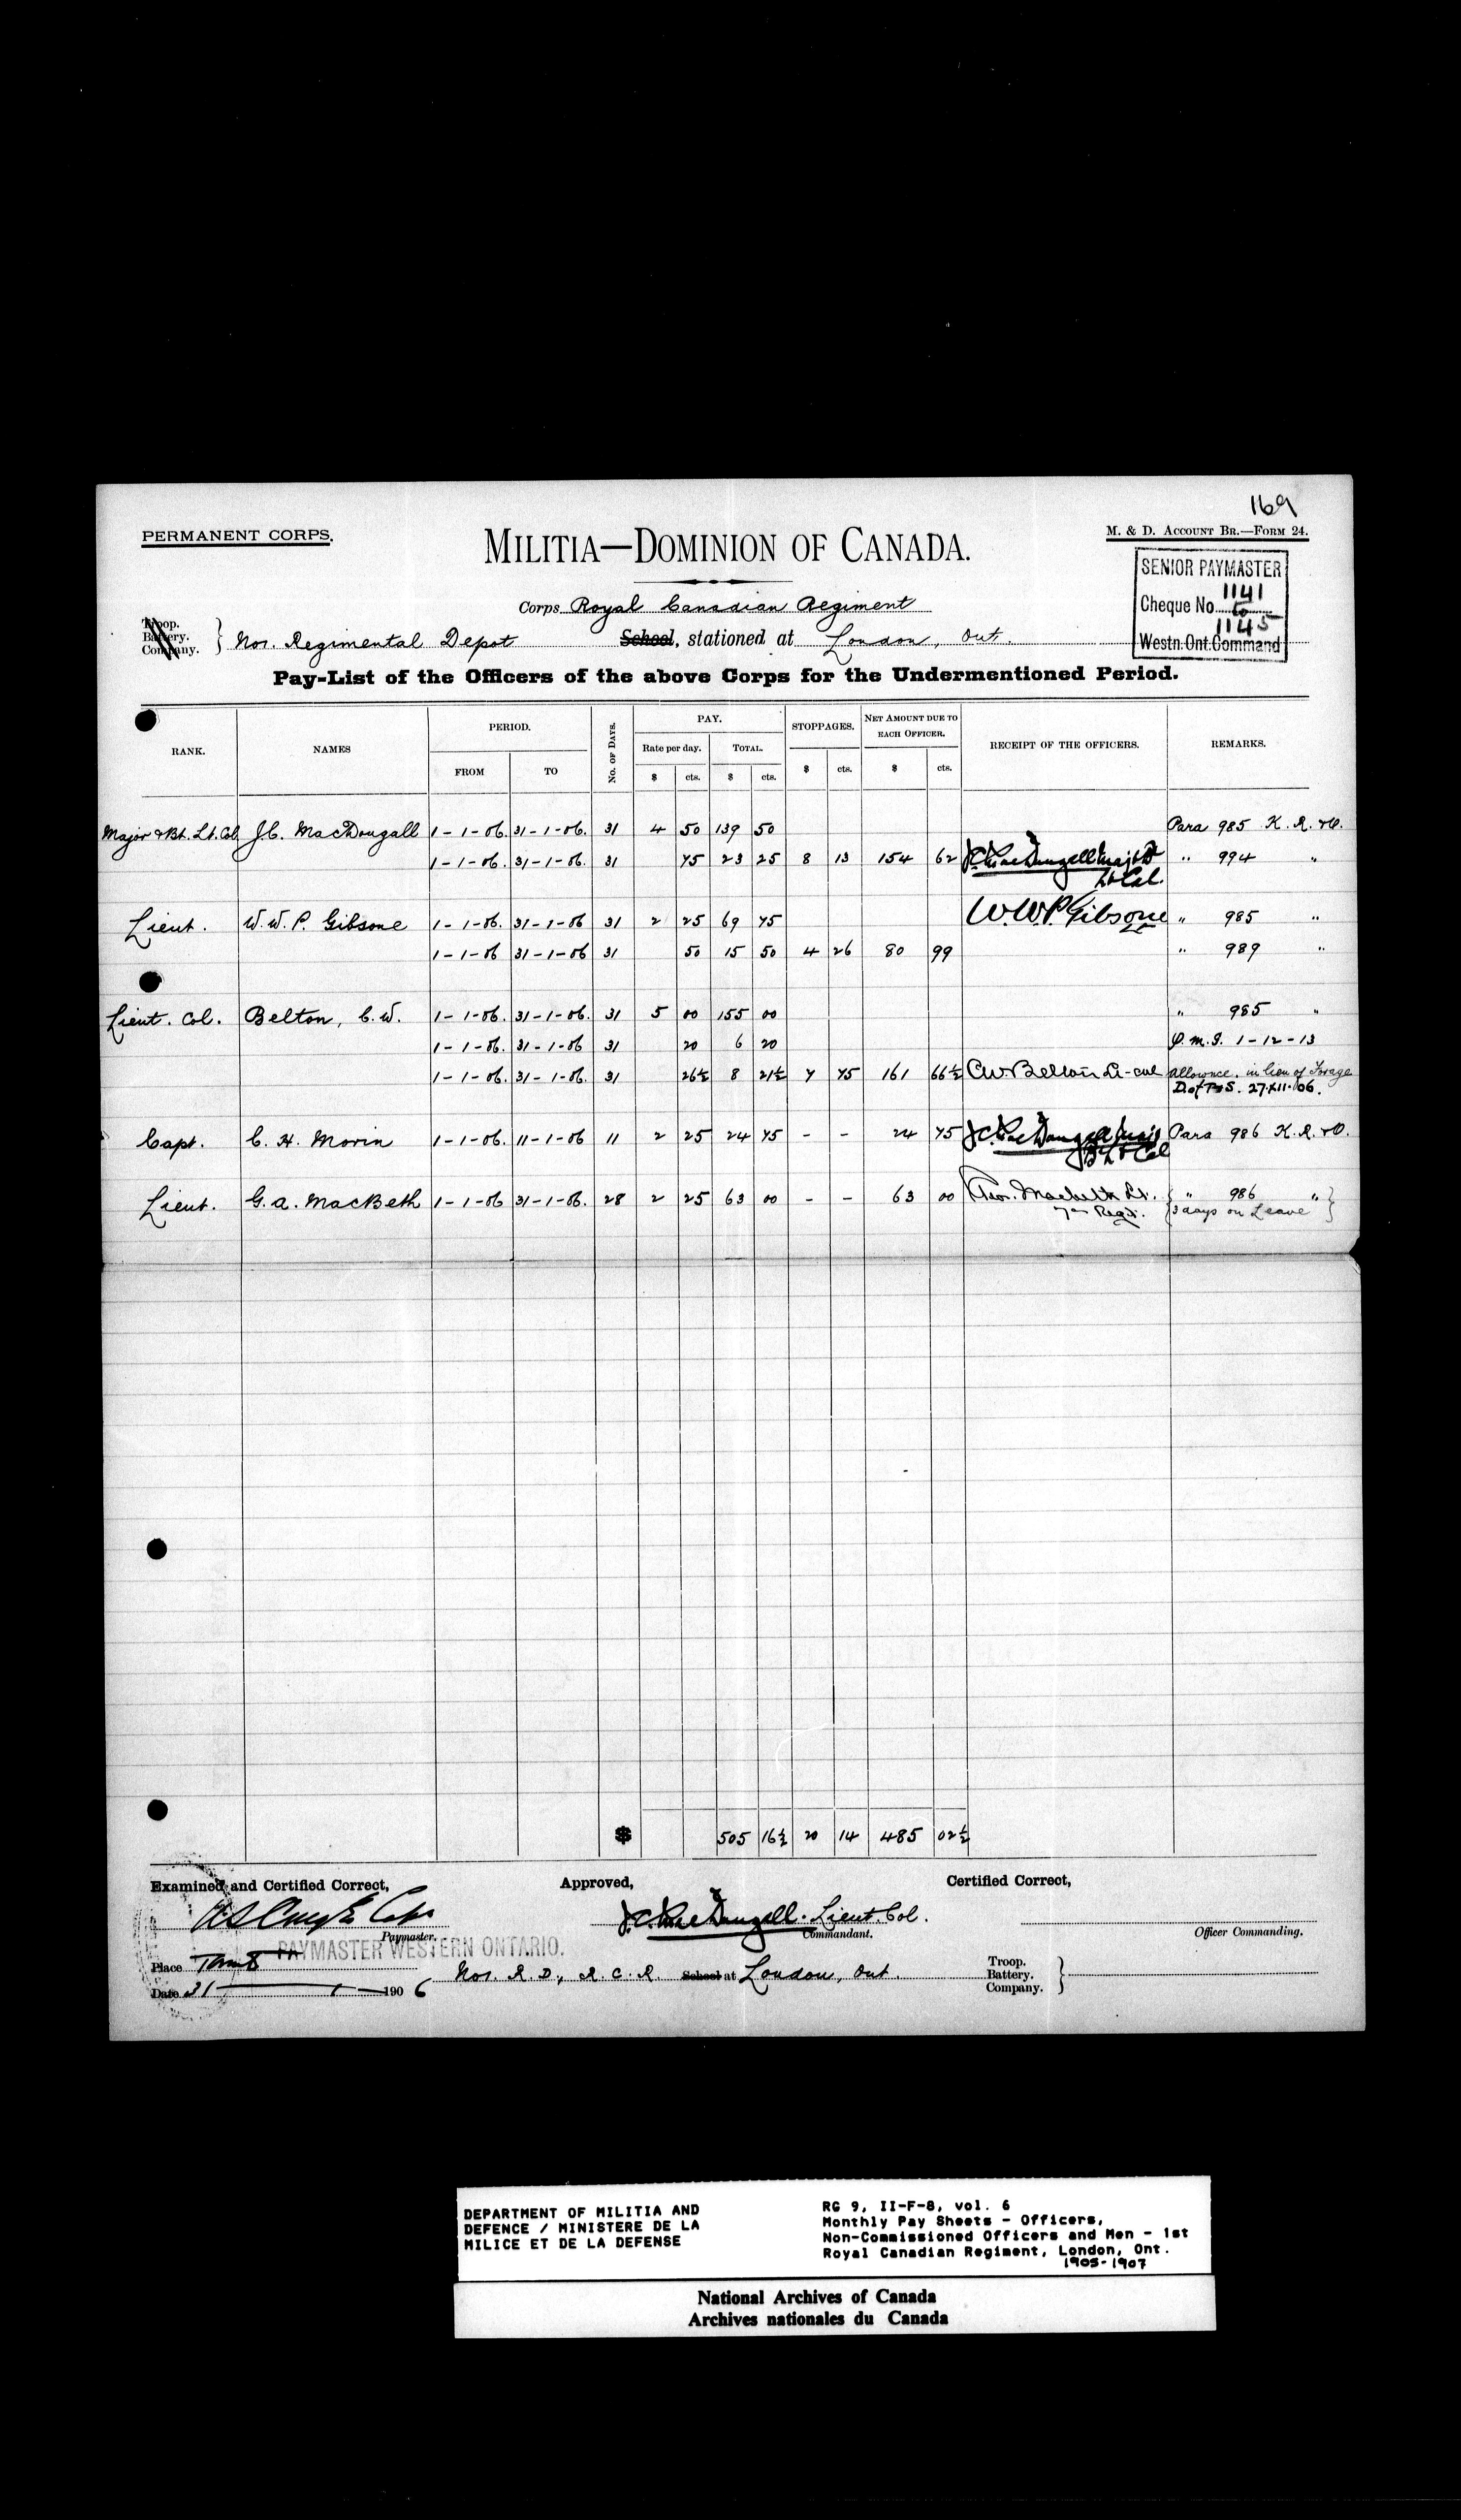 169
PERMANENT CORPS.
MILITIA—DOMINION OF CANADA.
M. & D. ACCOUNT BR.—FORM 24.
SENIOR PAYMASTER
Cheque No. 1141
to
1145
Westn. Ont. Command
Corps Royal Canadian Regiment
Troop.
Battery.
Company.
No 1. Regimental Depot School, stationed at London, Ont.
Pay-List of the Officers of the above Corps for the Undermentioned Period.
RANK. NAMES PERIOD. No. OF DAYS. PAY. STOPPAGES. NET AMOUNT DUE TO EACH OFFICER. RECEIPT OF THE OFFICERS. REMARKS.
FROM TO Rate per day. TOTAL.
$ cts. $ cts. $ cts. $ cts.
Major & Bt. Lt. Col. J.C. MacDougall 1-1-06. 31-1-06. 31 4 50 139 50 Para 985 K.R.&O.
1-1-06. 31-1-06. 31 75 23 25 8 13 154 62 J.C. MacDougall Maj & Bt Lt Col. " 994 "
Lieut. W.W.P. Gibsone 1-1-06. 31-1-06 31 2 25 69 75 W.W.P. Gibsone Lt " 985 "
1-1-06 31-1-06 31 50 15 50 4 26 80 99 " 989 "
Lieut. Col. Belton, C.W. 1-1-06. 31-1-06. 31 5 00 155 00 " 985 "
1-1-06. 31-1-06 31 20 6 20 1-12-13
1-1-06. 31-1-06. 31 26½ 8 21½ 7 75 161 66½ C.W. Belton Lt-Col allownce. in lieu of Forage
27.XII.06.
Capt. C.H. Morin 1-1-06. 11-1-06 11 2 25 24 75 - - 24 75 J.C. MacDougall Maj & Bt Lt Col Para 986 K.R.&O.
Lieut. G.A. MacBeth 1-1-06 31-1-06. 28 2 25 63 00 - - 63 00 Geo. Macbeth Lt. " 986 "
7th Regt. 3 days on Leave
$ 505 16½ 20 14 485 02½
Examined and Certified Correct, Approved, Certified Correct,
J.C. MacDougall. Lieut. Col.
Paymaster. Commandant. Officer Commanding.
PAYMASTER WESTERN ONTARIO.
Place
No 1. R.D., R.C.R. School at London, Ont.
Troop.
Battery.
Company.
Date 31 — 1 — 1906
DEPARTMENT OF MILITIA AND
DEFENCE / MINISTERE DE LA
MILICE ET DE LA DEFENSE
RG 9, II-F-8, vol. 6
Monthly Pay Sheets - Officers,
Non-Commissioned Officers and Men - 1st
Royal Canadian Regiment, London, Ont.
1905-1907
National Archives of Canada
Archives nationales du Canada